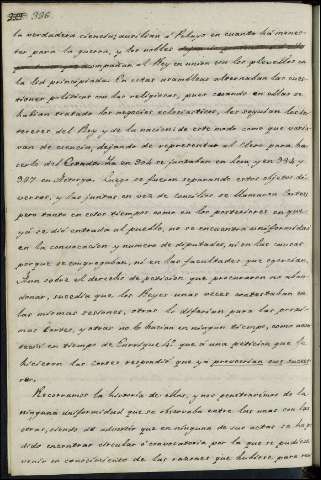 396
la verdadera ciencia; ausilian á Pelayo en cuanto há menes-
ter para la guerra, y los nobles
acompañan al Rey en union con los plebellos en
la lid principiada. En estas asambleas alternaban las cues-
tiones politicas con las religiosas, pues cuando en ellas se
habian tratado los negocios eclesiasticos, les seguian los in-
tereses del Rey y de la nacion: de este modo como que varia-
van de ciencia, dejando de representar el clero para ha-
cerlo del Estado. Ya en 904 se juntaban en Leon, y en 934 y
947 en Astorga. Luego se fueron separando estos objetos di-
versos, y las juntas en vez de concilios se llamaron Cortes;
pero tanto en estos tiempos como en los posteriores en que
yá se dió entrada al pueblo, no se encuentra uniformidad
en la convocacion y numero de diputados, ni en las causas
porque se congregaban, ni en las facultades que ejercian.
Aun sobre el derecho de peticion que procuraron no aban-
donar, sucedia que los Reyes unas veces contestaban en
las mismas sesiones, otras lo diferian para las proxi-
mas Cortes, y otras no lo hacian en ningun tiempo, como acon-
teció en tiempo de Enrrique 4º que á una peticion que le
hicieron las cortes respondió que ya proveerian sus suceso-
res.
Recorramos la historia de ellas, y nos penetraremos de la
ninguna uniformidad que se observaba entre las unas con las
otras, siendo de advertir que en ninguna de sus actas se ha po-
dido encontrar circular ó convocatoria por la que se pudiese
venir en conocimiento de las razones que hubiese para